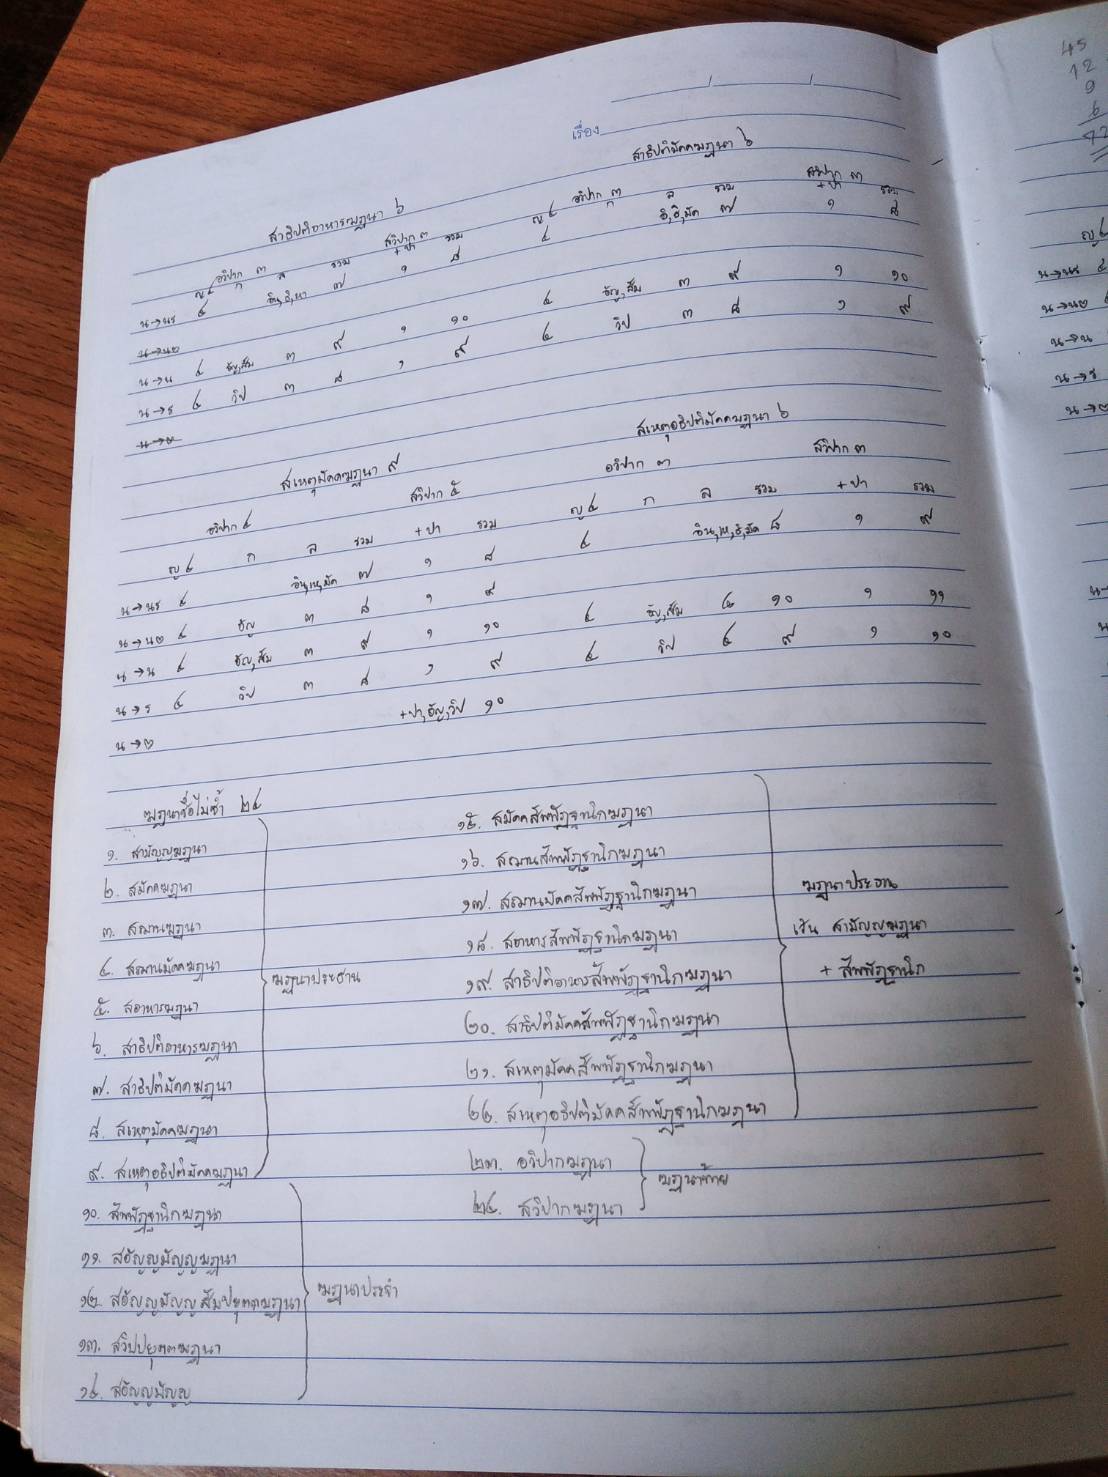 เรื่อง
สาธิปติอาหารฆฏนา ๖
อวิปาก ๓ สวิปาก ๓
ญ ๔ ก ล รวม +ปา รวม
น→นร ๔ อิน,ธิ,หา ๗ ๑ ๘
น→นอ
น→น ๔ อัญ,สัม ๓ ๙ ๑ ๑๐
น→ร ๔ วิป ๓ ๘ ๑ ๙
น→อ
สาธิปติมัคคฆฏนา ๖
อวิปาก ๓ สวิปาก ๓
ญ ๔ ก ล รวม +ปา รวม
๔ อิ,ธิ,มัค ๗ ๑ ๘
๔ อัญ,สัม ๓ ๙ ๑ ๑๐
๔ วิป ๓ ๘ ๑ ๙
สเหตุมัคคฆฏนา ๙
อวิปาก ๔ สวิปาก ๕
ญ ๔ ก ล รวม +ปา รวม
น→นร ๔ อิน,เห,มัค ๗ ๑ ๘
น→นอ ๔ อัญ ๓ ๘ ๑ ๙
น→น ๔ อัญ,สัม ๓ ๙ ๑ ๑๐
น→ร ๔ วิป ๓ ๘ ๑ ๙
น→อ +ปา,อัญ,วิป ๑๐
สเหตุอธิปติมัคคฆฏนา ๖
อวิปาก ๓ สวิปาก ๓
ญ ๔ ก ล รวม +ปา รวม
๔ อิน,เห,ธิ,มัค ๘ ๑ ๙
๔ อัญ,สัม ๔ ๑๐ ๑ ๑๑
๔ วิป ๔ ๙ ๑ ๑๐
ฆฏนาชื่อไม่ซ้ำ ๒๔
๑. สามัญญฆฏนา
๒. สมัคคฆฏนา
๓. สฌานฆฏนา
๔. สฌานมัคคฆฏนา
๕. สอาหารฆฏนา
๖. สาธิปติอาหารฆฏนา
๗. สาธิปติมัคคฆฏนา
๘. สเหตุมัคคฆฏนา
๙. สเหตุอธิปติมัคคฆฏนา
ฆฏนาประธาน
๑๐. สัพพัฏฐานิกฆฏนา
๑๑. สอัญญมัญญฆฏนา
๑๒. สอัญญมัญญสัมปยุตตฆฏนา
๑๓. สวิปปยุตตฆฏนา
๑๔. สอัญญมัญญ
ฆฏนาประจำ
๑๕. สมัคคสัพพัฏฐานิกฆฏนา
๑๖. สฌานสัพพัฏฐานิกฆฏนา
๑๗. สฌานมัคคสัพพัฏฐานิกฆฏนา
๑๘. สอาหารสัพพัฏฐานิกฆฏนา
๑๙. สาธิปติอาหารสัพพัฏฐานิกฆฏนา
๒๐. สาธิปติมัคคสัพพัฏฐานิกฆฏนา
๒๑. สเหตุมัคคสัพพัฏฐานิกฆฏนา
๒๒. สเหตุอธิปติมัคคสัพพัฏฐานิกฆฏนา
ฆฏนาประธาน
เว้น สามัญญฆฏนา
+ สัพพัฏฐานิก
๒๓. อวิปากฆฏนา
๒๔. สวิปากฆฏนา
ฆฏนาท้าย
45
12
9
6
ญ ๔
น→นร ๔
น→นอ
น→น
น→ร
น→อ